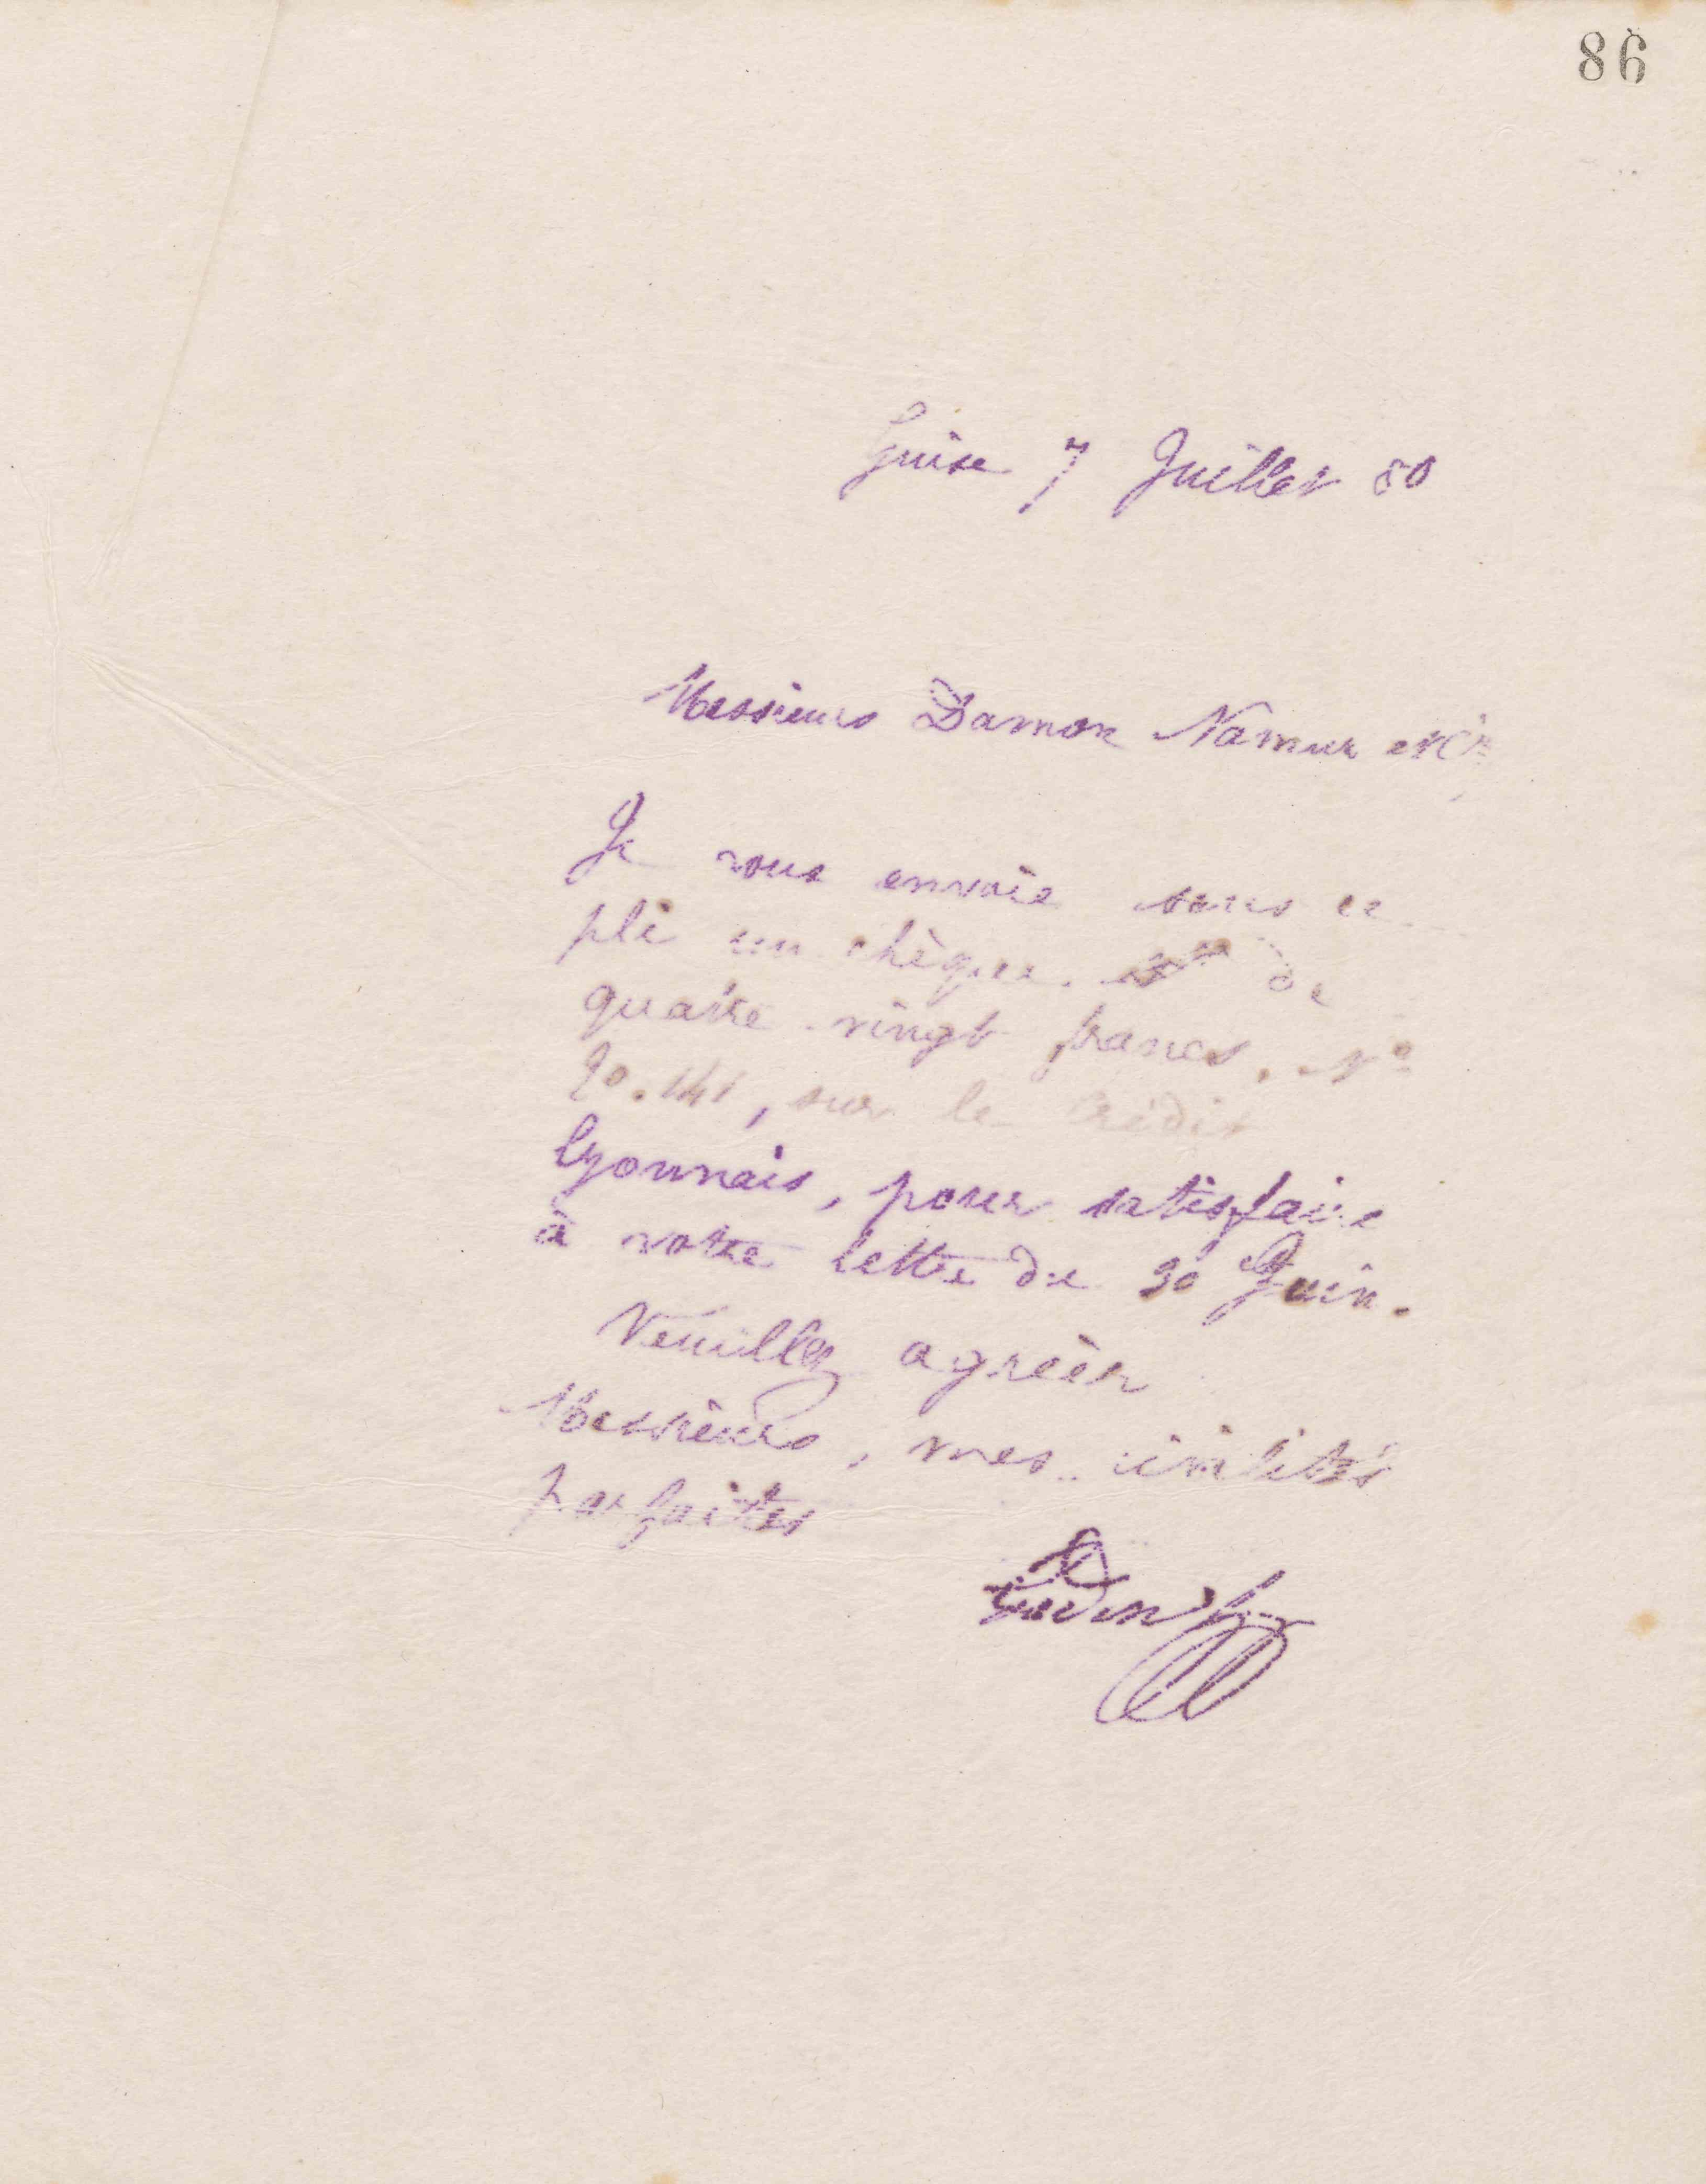 86
Guise 7 Juillet 80
Messieurs Damon Namur et Cie
Je vous envoie sous ce
pli un chèque. de
quatre vingt francs, No
90.141, sur le Crédit
lyonnais, pour satisfaire
à votre lettre du 30 Juin.
Veuillez agréer
Messieurs, mes civilités
parfaites
Godin